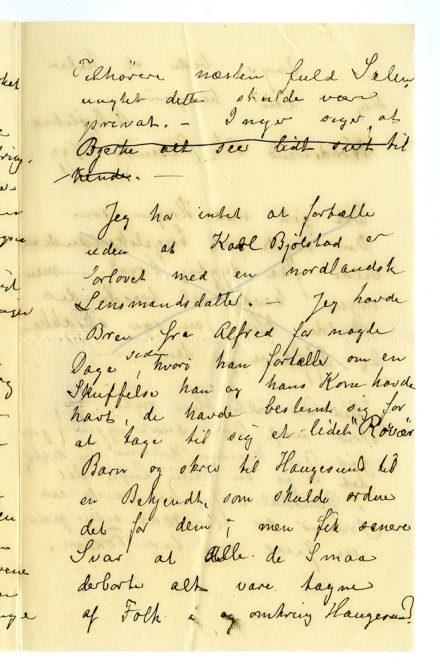 Tilhörere næsten fuld Salen
uagtet dette skulde være
privat. – Inger siger, at
Bjerke alt seer lidt surt til
hende. –
Jeg ha intet at fortælle
uden at Karl Bjölstad er
forlovet med en nordlandsk
Lensmandsdatter. – Jeg havde
Brev fra Alfred for nogle
Dage sid, hvori han fortælle om en
Skuffelse han og hans Kone havde
havt, de havde bestemt sig for
at tage til sig et lidet "Røvær
Barn og skrev til Haugesund til
en Bekjendt, som skulde ordne
det for dem; men fik senere
Svar at alle de Smaa
derborte alt vare tagne
af Folk i og omkring Haugesund.